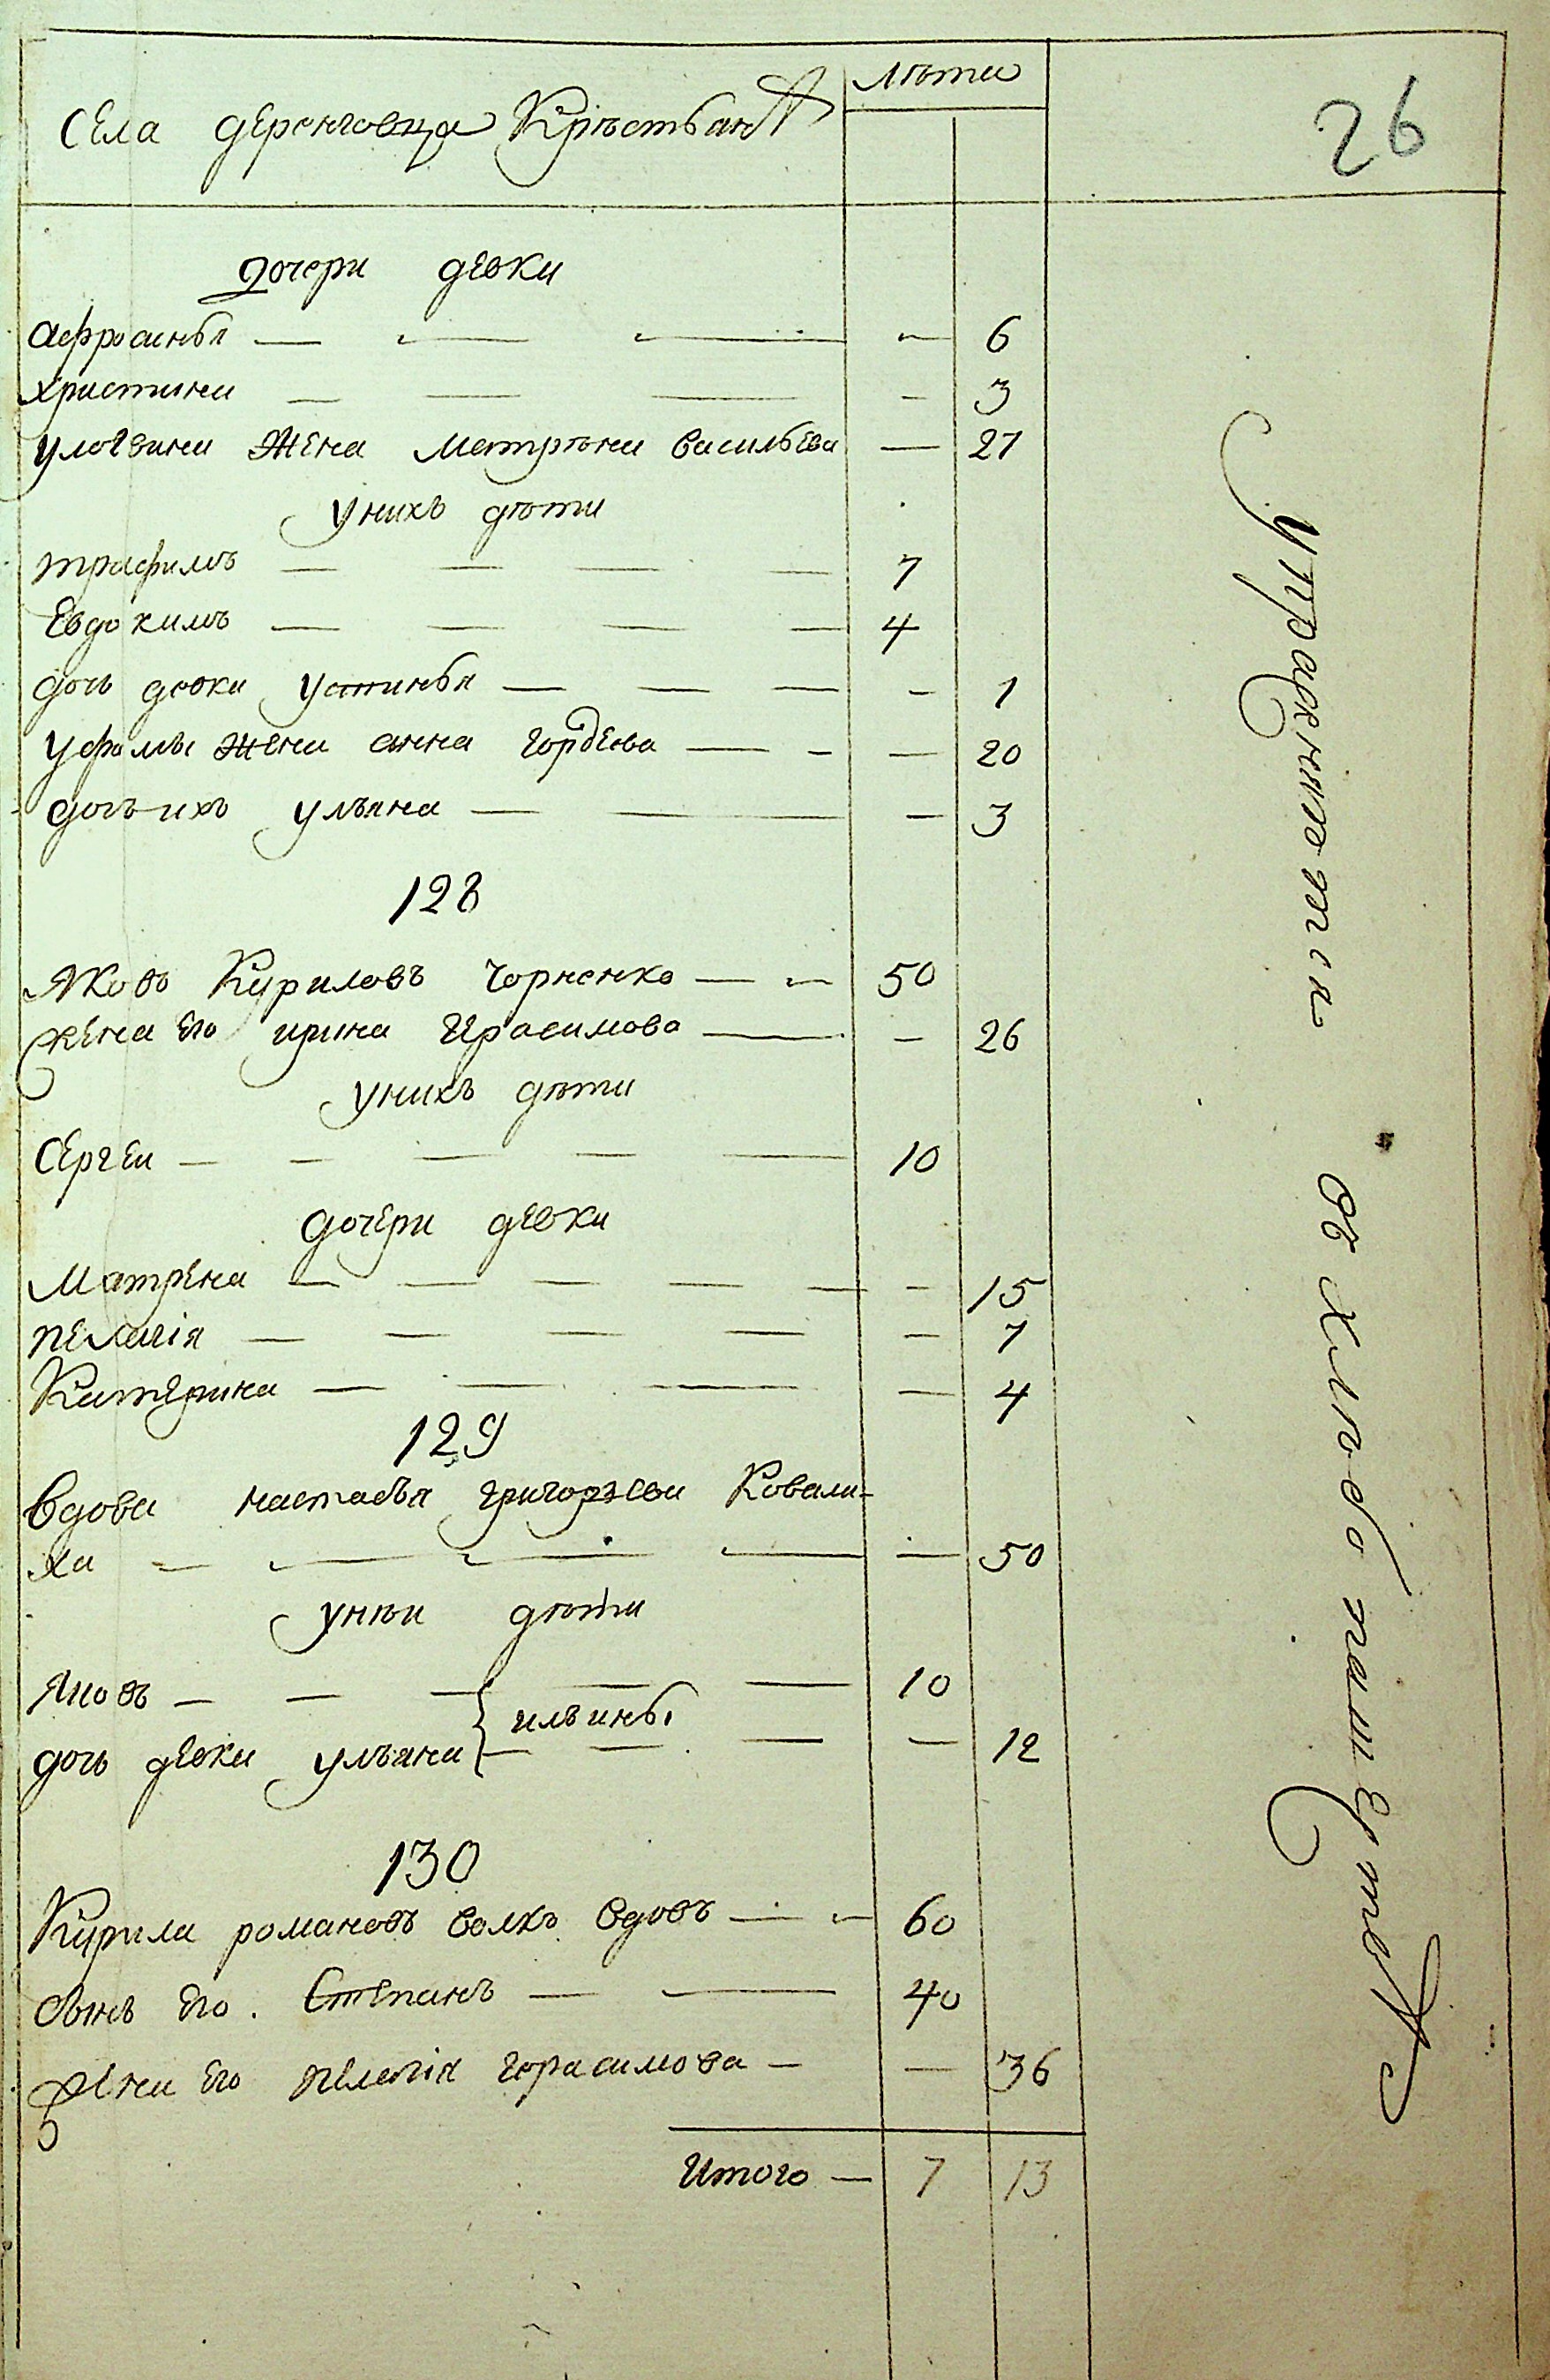 лѣта
Села деренговца Крѣстьянъ
26
дочери девки
афросинья — — — — 6
христина — — — — 3
жена матрѣна васильева — 27
у нихъ дѣти
трафимъ — — — — 7
Евдокимъ — — — — 4
дочь девка устинья — — — — 1
у фомы жена анна гордѣева — — — 20
дочь ихъ ульяна — — — 3
128
Яковъ Куриловъ Чорненко — — 50
жена его ирина Герасимова — — 26
у нихъ дѣти
Сергеи — — — — — 10
дочери девки
Матрена — — — — — — 15
пелагія — — — — — 7
Катерина — — — — 4
129
Вдова настасья григорьева Ковали-
ха — — — — — 50
у нѣи дѣти
Яковъ — — — — — 10
ильины
дочь девка ульяна — — — — 12
130
Курила романовъ волкъ вдовъ — — 60
сынъ его Степанъ — — 40
жена его пелагія герасимова — — 36
Итого — 7 13
упражняются въ хлебопашествѣ